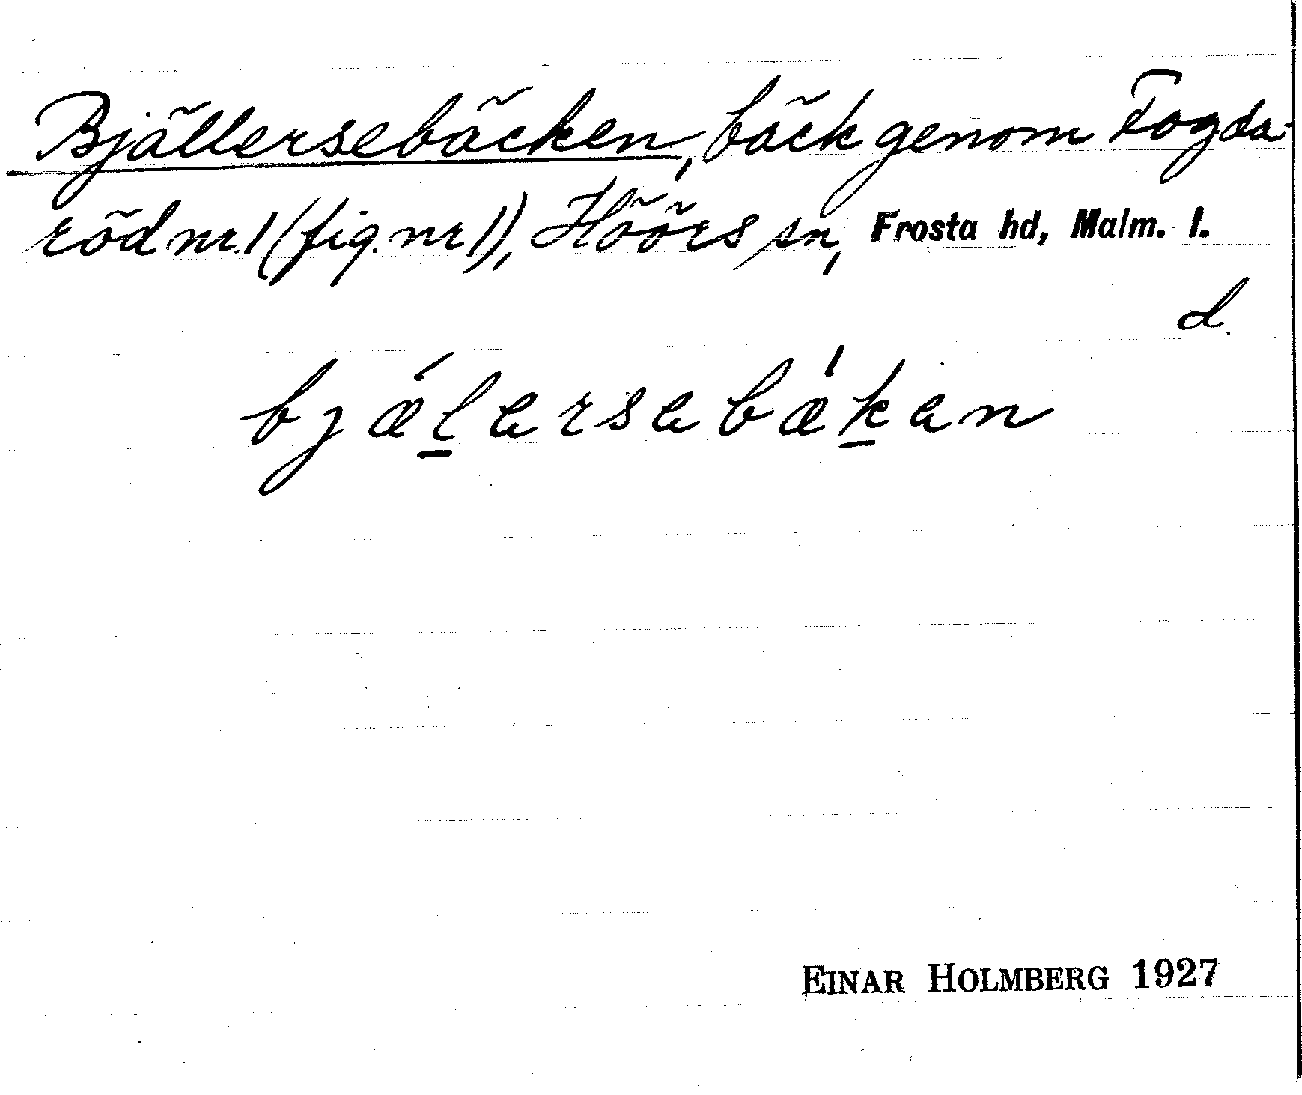 Bjällersebäcken, bäck genom Fogda-
röd nr 1 (fig. nr 1), Höörs sn, Frosta hd, Malm. l.
d.
bjǽl̲ersebǽk̲en
EINAR HOLMBERG 1927